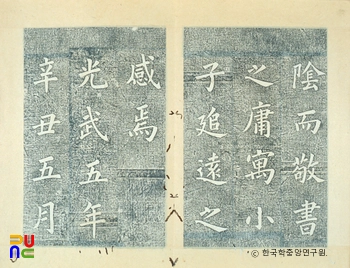 陰而敬書
之庸寓小
子追遠之
感焉
光武五年
辛丑五月
ⓒ 한국학중앙연구원